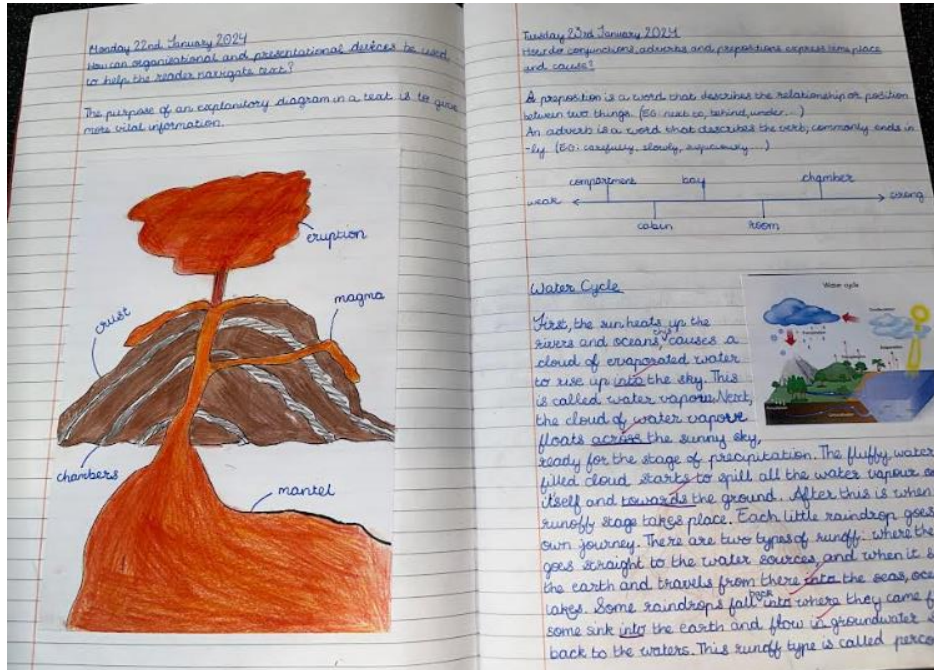 Monday 22nd January 2024
How can organisational and presentational devices be used
to help the reader navigate text?
The purpose of an explanitory diagram in a text is to give
more vital information.
eruption
magma
crust
chambers
mantel
Tuesday 23rd January 2024
How do conjunctions, adverbs and prepositions express time, place
and cause?
A preposition is a word that describes the relationship or position
between two things. (EG: next to, behind, under...)
An adverb is a word that describes the verb, commonly ends in
-ly (EG: carefully, slowly, ...)
compartment bay chamber
weak strong
cabin room
Water Cycle
Water cycle
First, the sun heats up the
rivers and oceans, this causes a
cloud of evaporated water
to rise up into the sky. This
is called water vapour. Next,
the cloud of water vapour
floats across the sunny sky,
ready for the stage of precipitation. The fluffy water
filled cloud starts to spill all the water vapour
itself and towards the ground. After this is when
runoff stage takes place. Each little raindrop goes
own journey. There are two types of runoff: where the
goes straight to the water sources, and when it
the earth and travels from there into the seas,
lakes. Some raindrops fall back into where they came
some sink into the earth and flow in groundwater
back to the waters. This runoff type is called